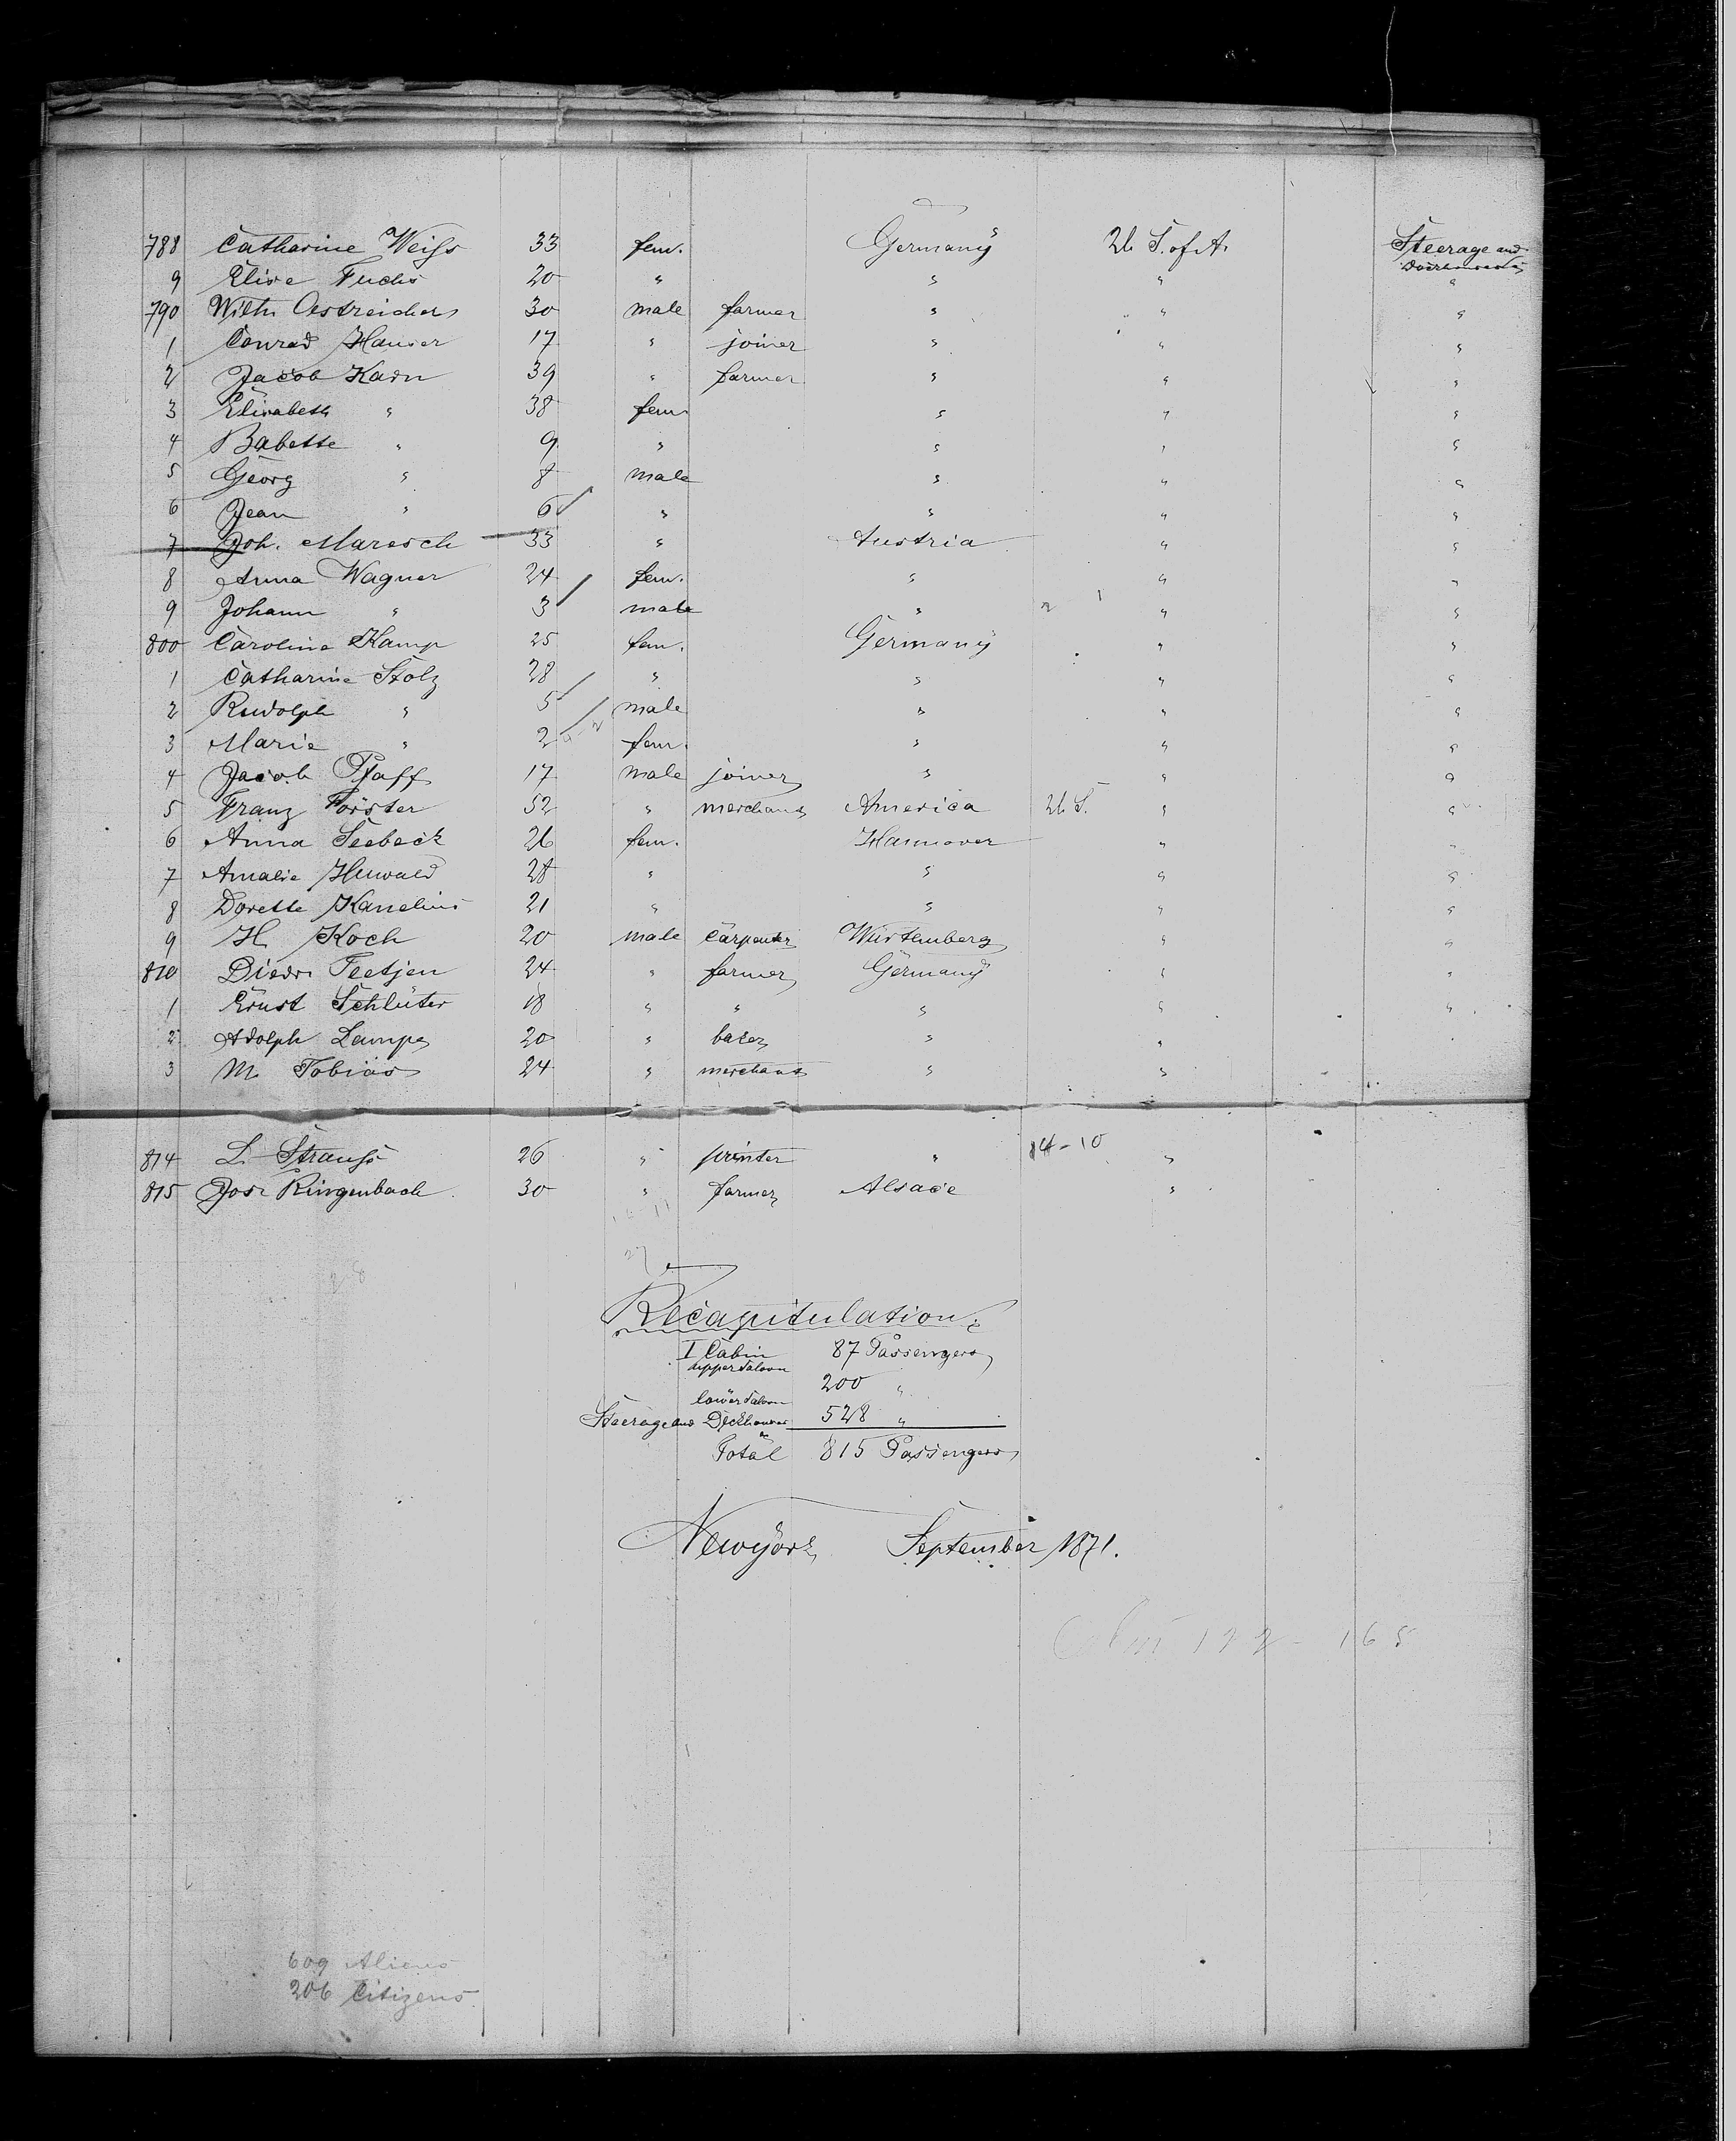 788 Catharine Weiſs 33 fem. Germany U. S. of A. Steerage and
9 Elise Fuchs 20 " " " "
790 Wilh. Oestreicher 30 male farmer " " "
1 Conrad Hauser 17 " joiner " " "
2 Jacob Karn 39 " farmer " " "
3 Elisabeth " 38 fem. " " "
4 Babette " 9 " " " "
5 Georg " 8 male " " "
6 Jean " 6 " " " "
7 Joh. Maresch 33 " Austria " "
8 Anna Wagner 24 fem. " " "
9 Johann " 3 male " " "
800 Caroline Kamp 25 fem. Germany " "
1 Catharine Stolz 28 " " " "
2 Rudolph " 5 male " " "
3 Marie " 2 fem. " " "
4 Jacob Pfaff 17 male joiner " " "
5 Franz Förster 52 " merchant America U. S. " "
6 Anna Seebeck 26 fem. Hannover " "
7 Amalie 28 " " " "
8 Dorette 21 " " " "
9 H. Koch 20 male carpenter Würtemberg " "
810 Diedr. Teetjen 24 " farmer Germany " "
1 Ernst Schlüter 18 " " " " "
2 Adolph Lampe 20 " baker " "
3 M. Tobias 24 " merchant " "
814 L. Strauſs 26 " printer " 14-10 "
815 Jos. Ringenbach 30 " farmer Alsace "
Recapitulation:
I Cabin 87 Passengers
upper Saloon
200 "
lower Saloon
Steerage and Deckhouses 528 "
Total 815 Passengers
Newyork September 1871.
609 Aliens
206 Citizens